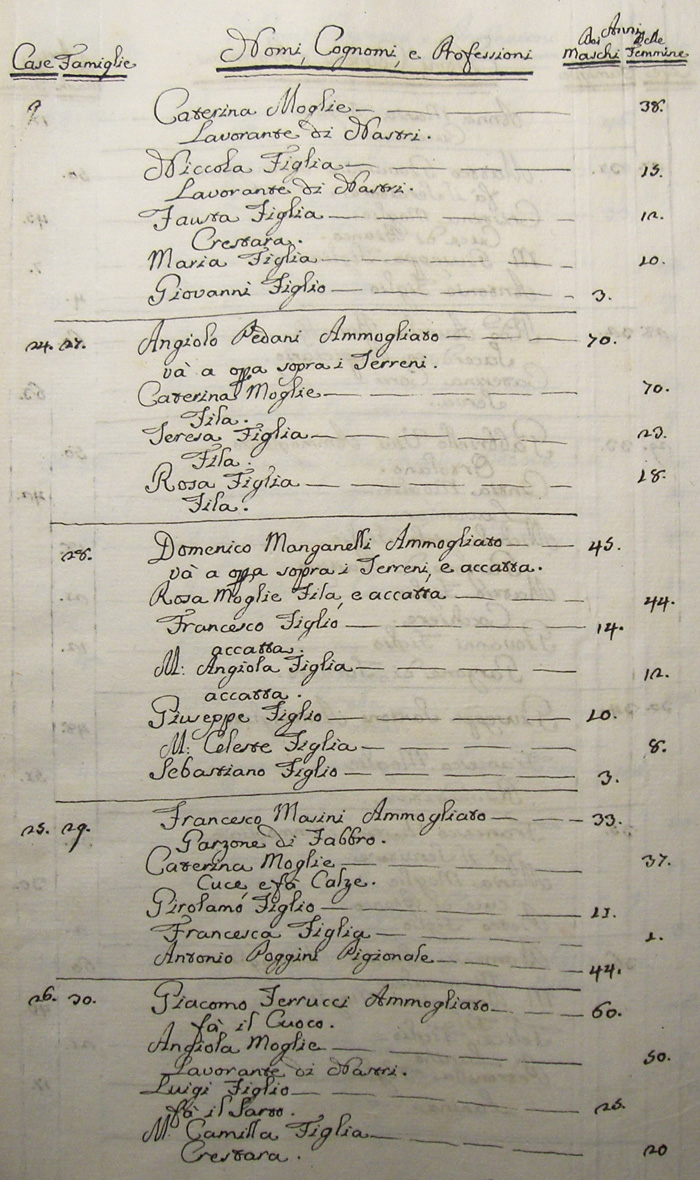 Case Famiglie Nomi, Cognomi, e Professioni Anni Dei Maschi Delle Femmine
Caterina Moglie 38.
Lavorante di Nastri.
Niccola Figlia 15.
Lavorante di Nastri.
Fausta Figlia 12.
Crestara.
Maria Figlia 10.
Giovanni Figlio 3.
24. 27. Angiolo Pedani Ammogliato 70.
và a opa sopra i Terreni.
Caterina Moglie 70.
Fila.
Teresa Figlia 23.
Fila.
Rosa Figlia 18.
Fila.
28. Domenico Manganelli Ammogliato 45.
và a opa sopra i Terreni, e accatta.
Rosa Moglie Fila, e accatta 44.
Francesco Figlio 14.
accatta.
M: Angiola Figlia 12.
accatta.
Giuseppe Figlio 10.
M: Celeste Figlia 8.
Sebastiano Figlio 3.
25. 29. Francesco Masini Ammogliato 33.
Garzone di Fabbro.
Caterina Moglie 37.
Cuce, e fà Calze.
Girolamo Figlio 11.
Francesca Figlia 1.
Antonio Poggini Pigionale 44.
26. 30. Giacomo Ferrucci Ammogliato 60.
fà il Cuoco.
Angiola Moglie 50.
Lavorante di Nastri.
Luigi Figlio 26.
fà il Sarto.
M: Camilla Figlia 20
Crestara.